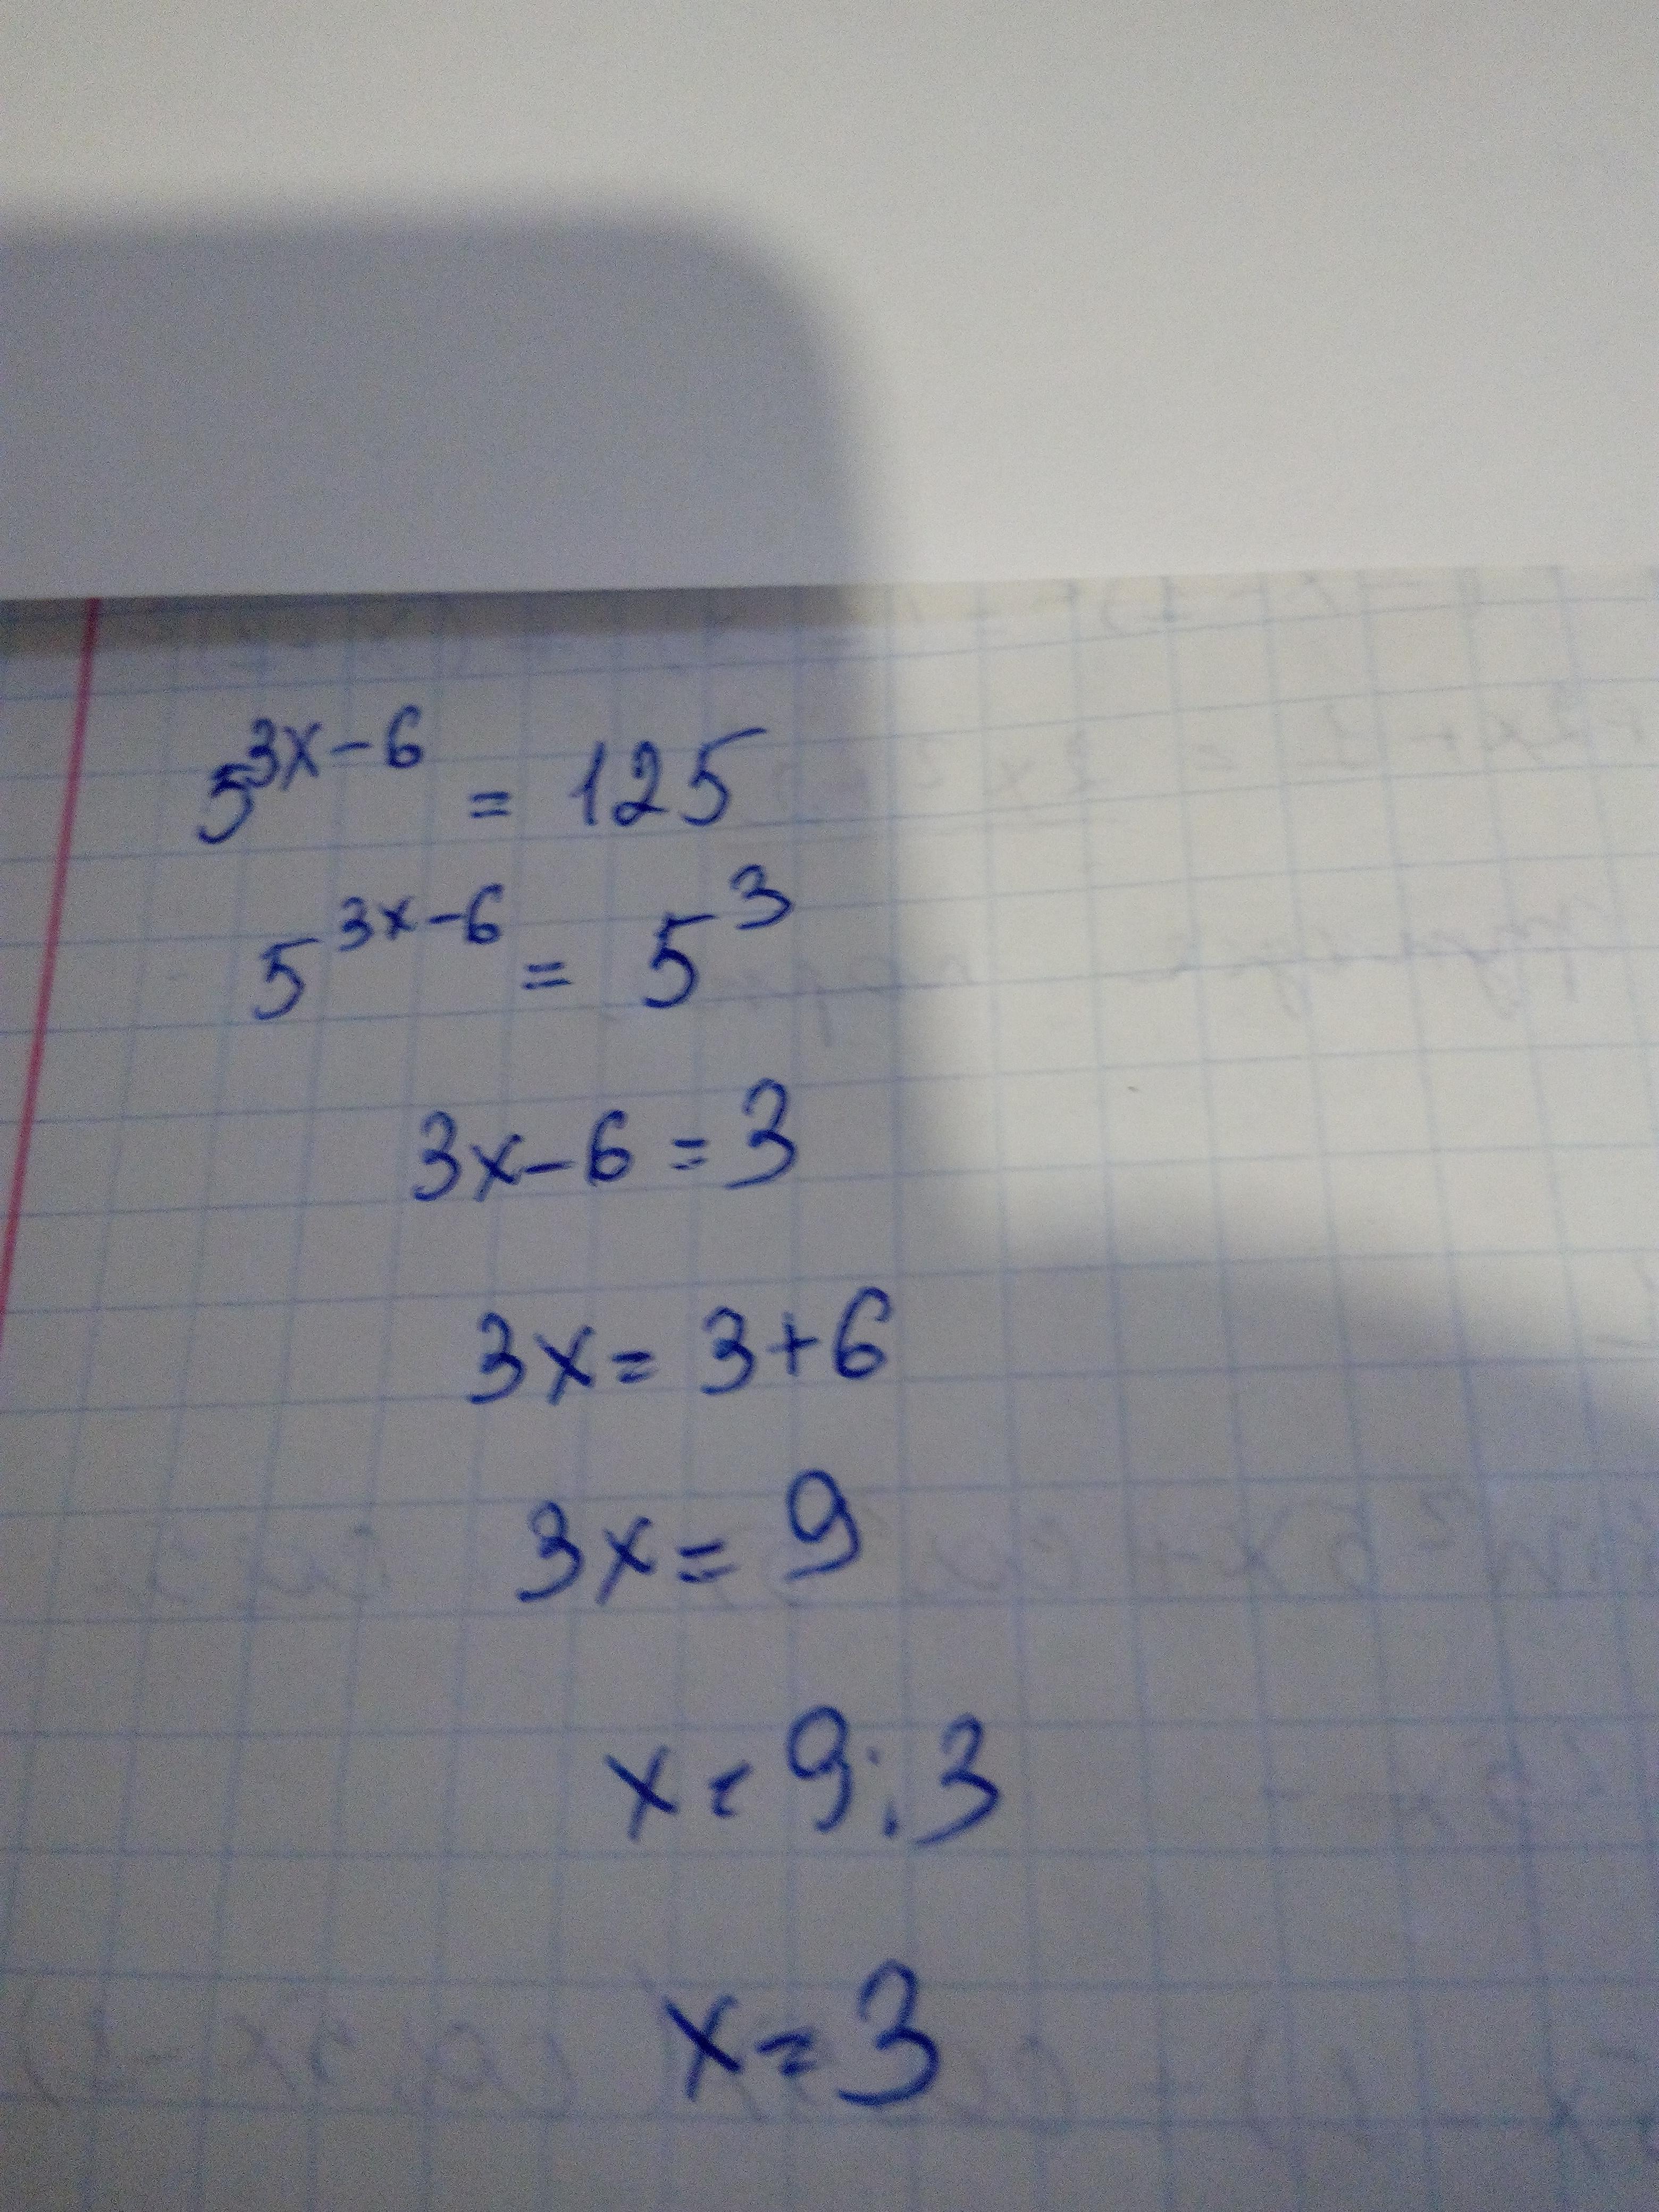 5^{3x-6} = 125
5^{3x-6} = 5^3
3x-6=3
3x=3+6
3x=9
x=9:3
x=3